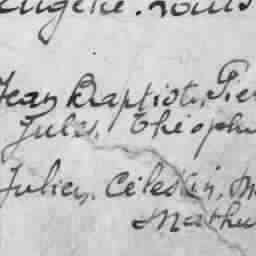 Eugène. Louis
Jean Baptiste, Pier
Jules, Théophi
Julien, Célestin, M
Mathu